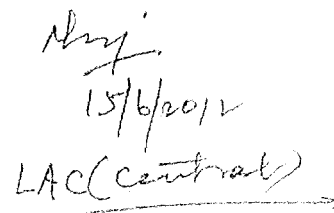 15/6/2012
LAC(Central)